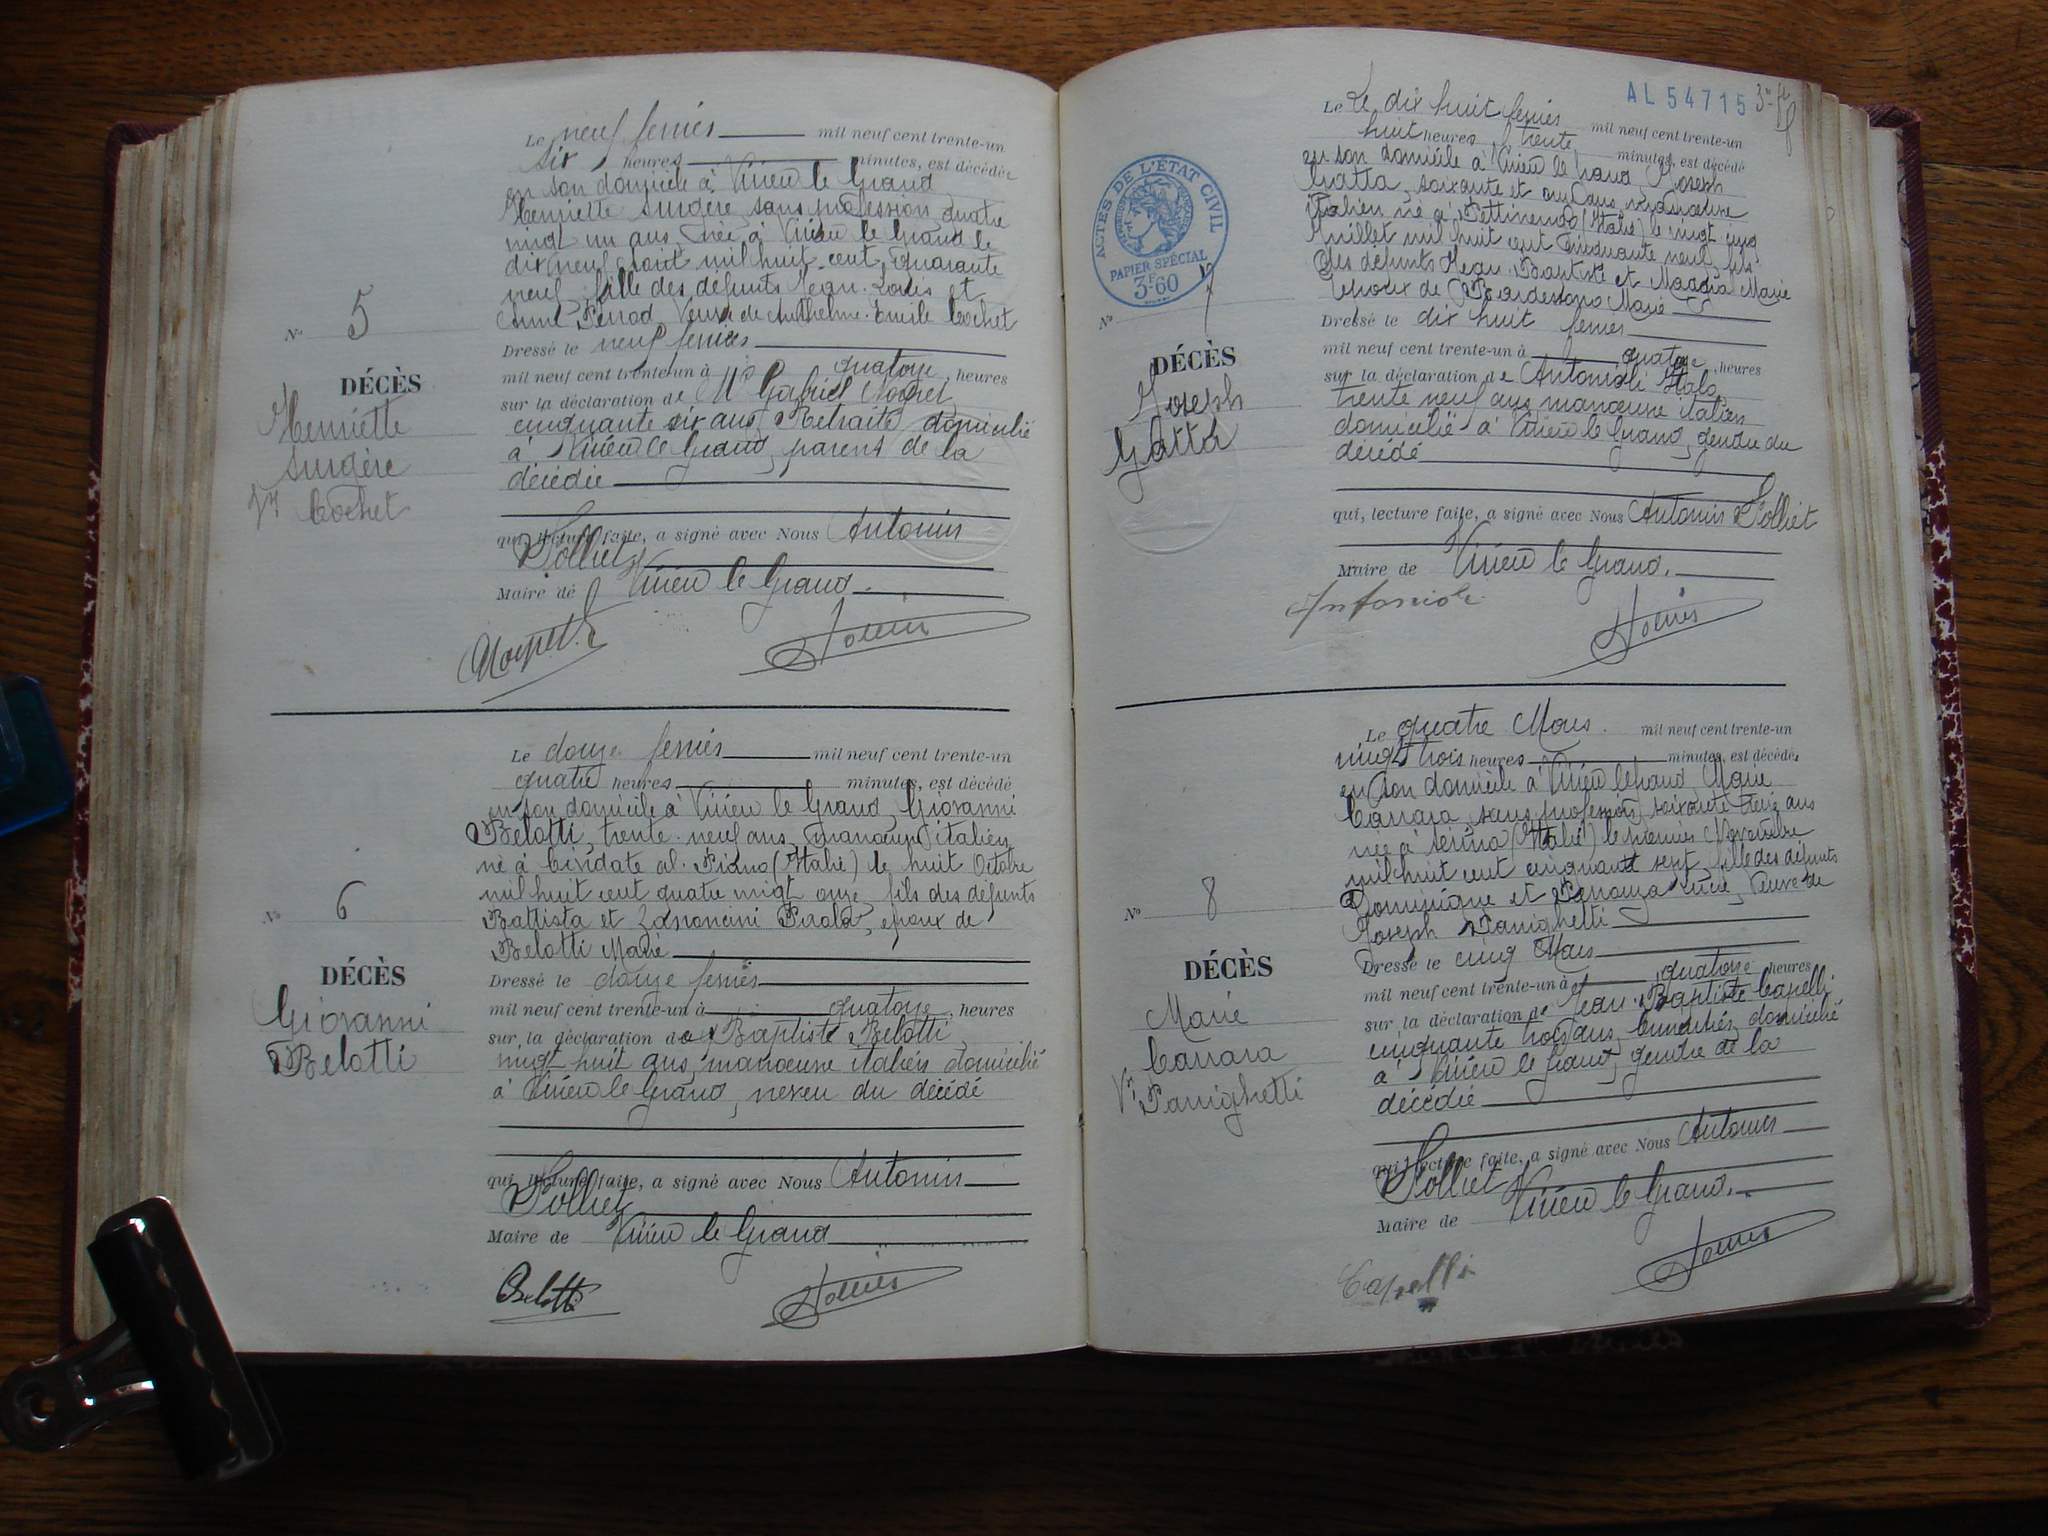 Le neuf février mil neuf cent trente-un
six heures minutes, est décédée
en son domicile à Virieu le Grand
Henriette Surgère sans profession quatre
vingt un ans née à Virieu le Grand le
dix neuf août mil huit cent quarante
neuf fille des défunts Jean Louis et
Anne Perrod, Veuve de Anthelme Emile Cochet
Dressé le neuf février
mil neuf cent trente-un à quatorze, heures
sur la déclaration de Mr Gabriel
cinquante six ans, Retraité domicilié
à Virieu le Grand, parent de la
décédée
qui, lecture faite, a signé avec Nous Antonin
Solliet
Maire de Virieu le Grand.
N° 5
DÉCÈS
Henriette
Surgère
Vve Cochet
Le douze février mil neuf cent trente-un
quatre heures minutes, est décédé
en son domicile à Virieu le Grand, Giovanni
Belotti, trente-neuf ans, manœuvre italien
né à Cividate al Piano (Italie) le huit Octobre
mil huit cent quatre vingt onze, fils des défunts
Battista et Zanoncini Paola, époux de
Belotti Marie
Dressé le douze février
mil neuf cent trente-un à quatorze, heures
sur la déclaration de Baptiste Belotti
vingt huit ans, manœuvre italien domicilié
à Virieu le Grand, neveu du décédé
qui, lecture faite, a signé avec Nous Antonin
Solliet
Maire de Virieu le Grand
Belotti
N° 6
DÉCÈS
Giovanni
Belotti
AL 54715
Le Le dix huit février mil neuf cent trente-un
huit heures, trente minutes, est décédé
en son domicile à Virieu le Grand, Joseph
Gatta, soixante et onze ans, manœuvre
italien né à (Italie) le vingt cinq
Juillet mil huit cent cinquante neuf, fils
des défunts Jean Baptiste et Maddia Marie
Epoux de Marie
Dressé le dix huit février
mil neuf cent trente-un à quatorze, heures
sur la déclaration de Antonioli Italo
trente neuf ans, manœuvre italien
domicilié à Virieu le Grand, gendre du
décédé
qui, lecture faite, a signé avec Nous Antonin Solliet
Maire de Virieu le Grand.
Antonioli
ACTES DE L'ÉTAT CIVIL
PAPIER SPÉCIAL
3F60
N° 7
DÉCÈS
Joseph
Gatta
Le quatre Mars mil neuf cent trente-un
vingt trois heures minutes, est décédée
en son domicile à Virieu le Grand, Marie
Carrara, sans profession, soixante treize ans
née à (Italie) le premier Novembre
mil huit cent cinquante sept, fille des défunts
Dominique et Lucie, Veuve de
Joseph Panighetti
Dressé le cinq Mars
mil neuf cent trente-un à quatorze, heures
sur la déclaration de Jean-Baptiste Capelli
cinquante trois ans, domicilié
à Virieu le Grand, gendre de la
décédée
qui, lecture faite, a signé avec Nous Antonin
Solliet
Maire de Virieu le Grand.
Capelli
N° 8
DÉCÈS
Marie
Carrara
Vve Panighetti